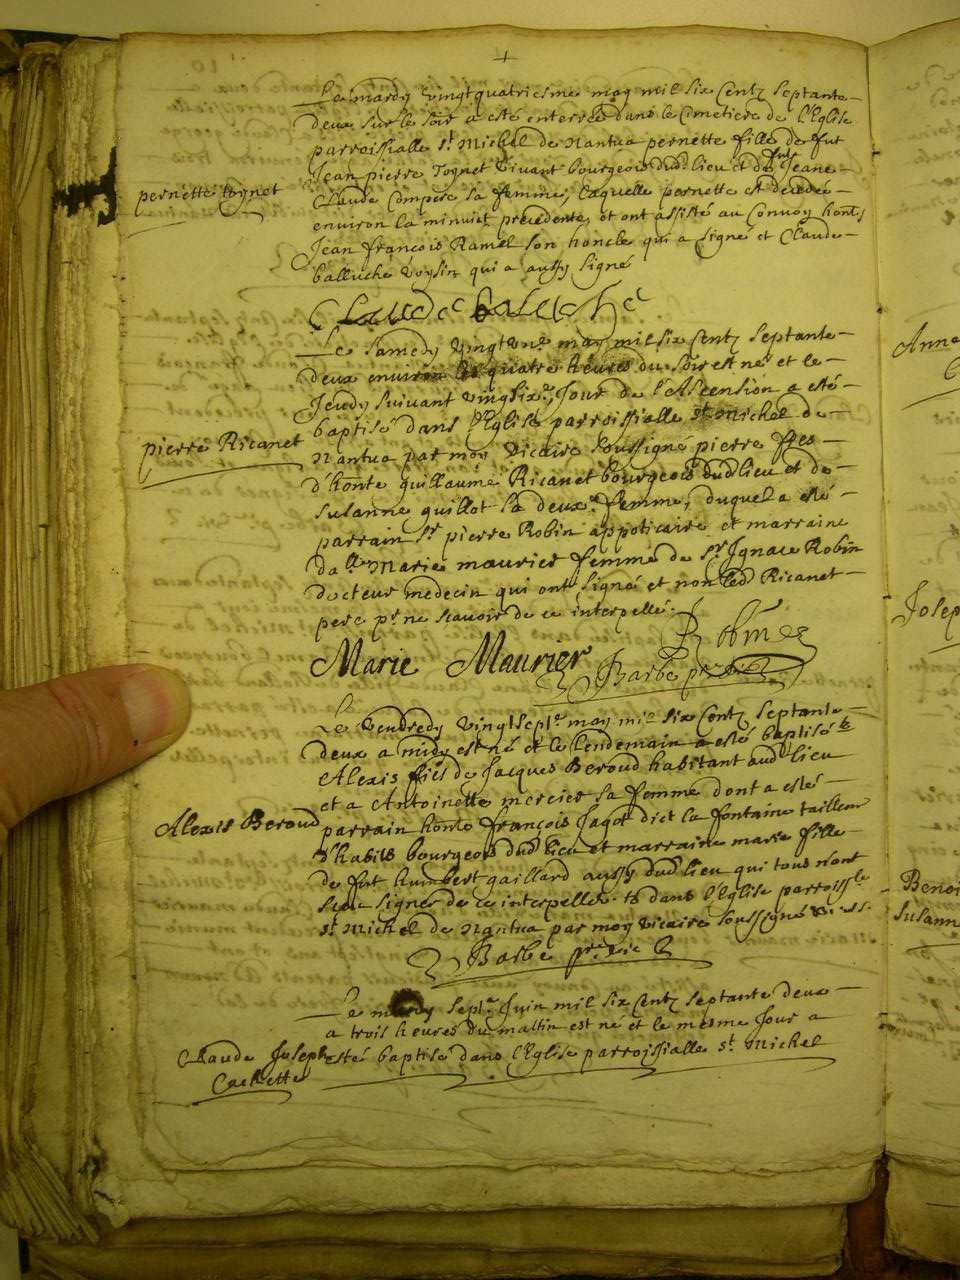 Le mardy vingt quatriesme may mil six centz septante
deux sur le soir a esté enterrée dans le Cimetiere de l'Eglise
parroissialle st Michel de Nantua pernette fille de fut
Jean pierre Tognet vivant bourgeois dud lieu et de fut Jeane
pernette tognet
Claude Compere sa femme, laquelle pernette est decedée
environ la minuict précédente, et ont assisté au Convoy hont.
Jean françois Ramel son honcle qui a signé et Claude
balluche voysin qui a aussy signé
Claude baluche
Le samedy vingt un may mil six centz septante
deux environ les quatre heures du soir est né et le
Jeudy suivant vingt six.e Jour de l'Ascension a esté
baptisé dans l'Eglise parroissialle st Michel de
pierre Ricanet
Nantua par moy vicaire soussigné pierre ffes
d'honte guillaume Ricanet bourgeois dud lieu et de
Susanne guillot sa deux.e femme, duquel a esté
parrain sr pierre Robin appoticaire et marraine
da.lle Marie maurier femme de Sr Ignace Robin
docteur medecin qui ont signé et non led Ricanet
pere pr ne scavoir de ce interpellé.
Robin
Marie Maurier
Barbe pr
Le vendredy vingt sept.e may mil six centz septante
deux a midy est né et le lendemain a esté baptisé
Alexis fils de Jacques Beroud habitant aud lieu
et a Antoinette mercier sa femme dont a esté
Alexis Beroud
parrain honte françois Jagot dict la fontaine tailleur
d'habits bourgeois dud lieu et marraine marie fille
de fut humbert gaillard aussy dud lieu qui tous n'ont
sceu signer de ce interpellés. dans l'Eglise parroiss.le
st Michel de Nantua par moy vicaire soussigné
Barbe pr. vic
Le mardy sept.e Juin mil six centz septante deux
a trois heures du mattin est né et le mesme Jour a
Claude Joseph
esté baptisé dans l'Eglise parroissialle st Michel
Cachette
Anne
Josep
Benoi
Susann